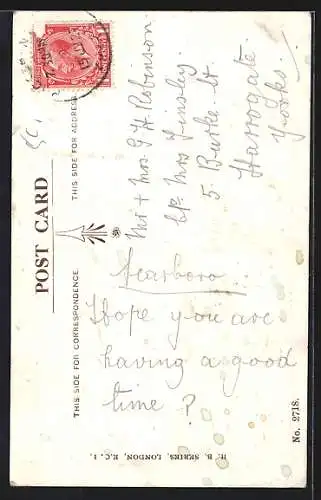 POST CARD
THIS SIDE FOR CORRESPONDENCE
THIS SIDE FOR ADDRESS
Scarboro
Hope you are
having a good
time ?
Mr + Mrs G H Robinson
c/o Mrs Tinsley
5 Burke St
Harrogate
Yorks.
H. B. SERIES, LONDON, E.C. 1.
No. 2718.